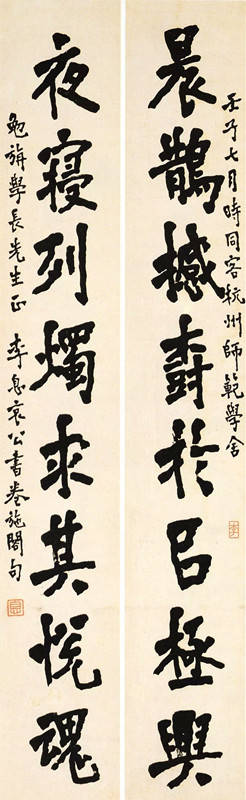 壬子七月時同客杭州師範學舍
晨鵲撼樹於㠯極興
夜寢列燭求其悅魂
勉旃學長先生正 李息哀公書卷施閣句